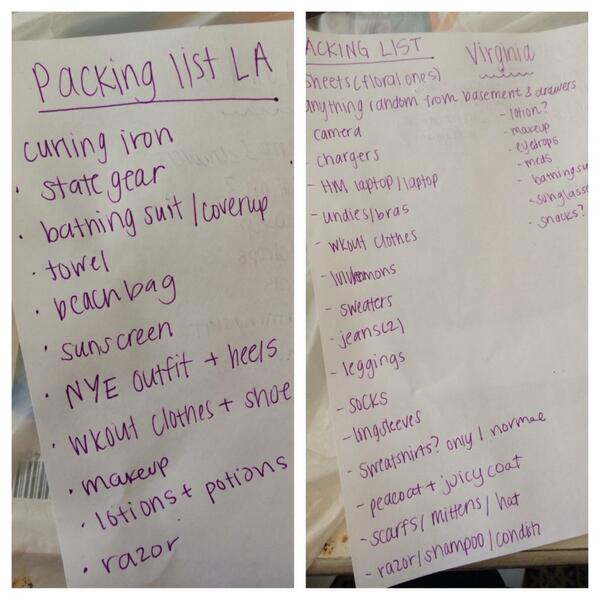 Packing list LA
curling iron
• state gear
• bathing suit / coverup
• towel
• beach bag
• sunscreen
• NYE outfit + heels
• wkout clothes + shoe
• makeup
• lotions + potions
• razor
ACKING LIST
sheets (floral ones)
anything random from basement & drawers
camera
- chargers
- HM laptop / laptop
- undies/bras
- wkout clothes
- lululemons
- sweaters
- jeans (2)
- leggings
- socks
- longsleeves
- sweatshirts? only 1 normal
- peacoat + juicy coat
- scarfs / mittens / hat
- razor/shampoo/condish
Virginia
- lotion?
- makeup
- eyedrops
- meds
- bathing su
- sunglasse
- snacks?